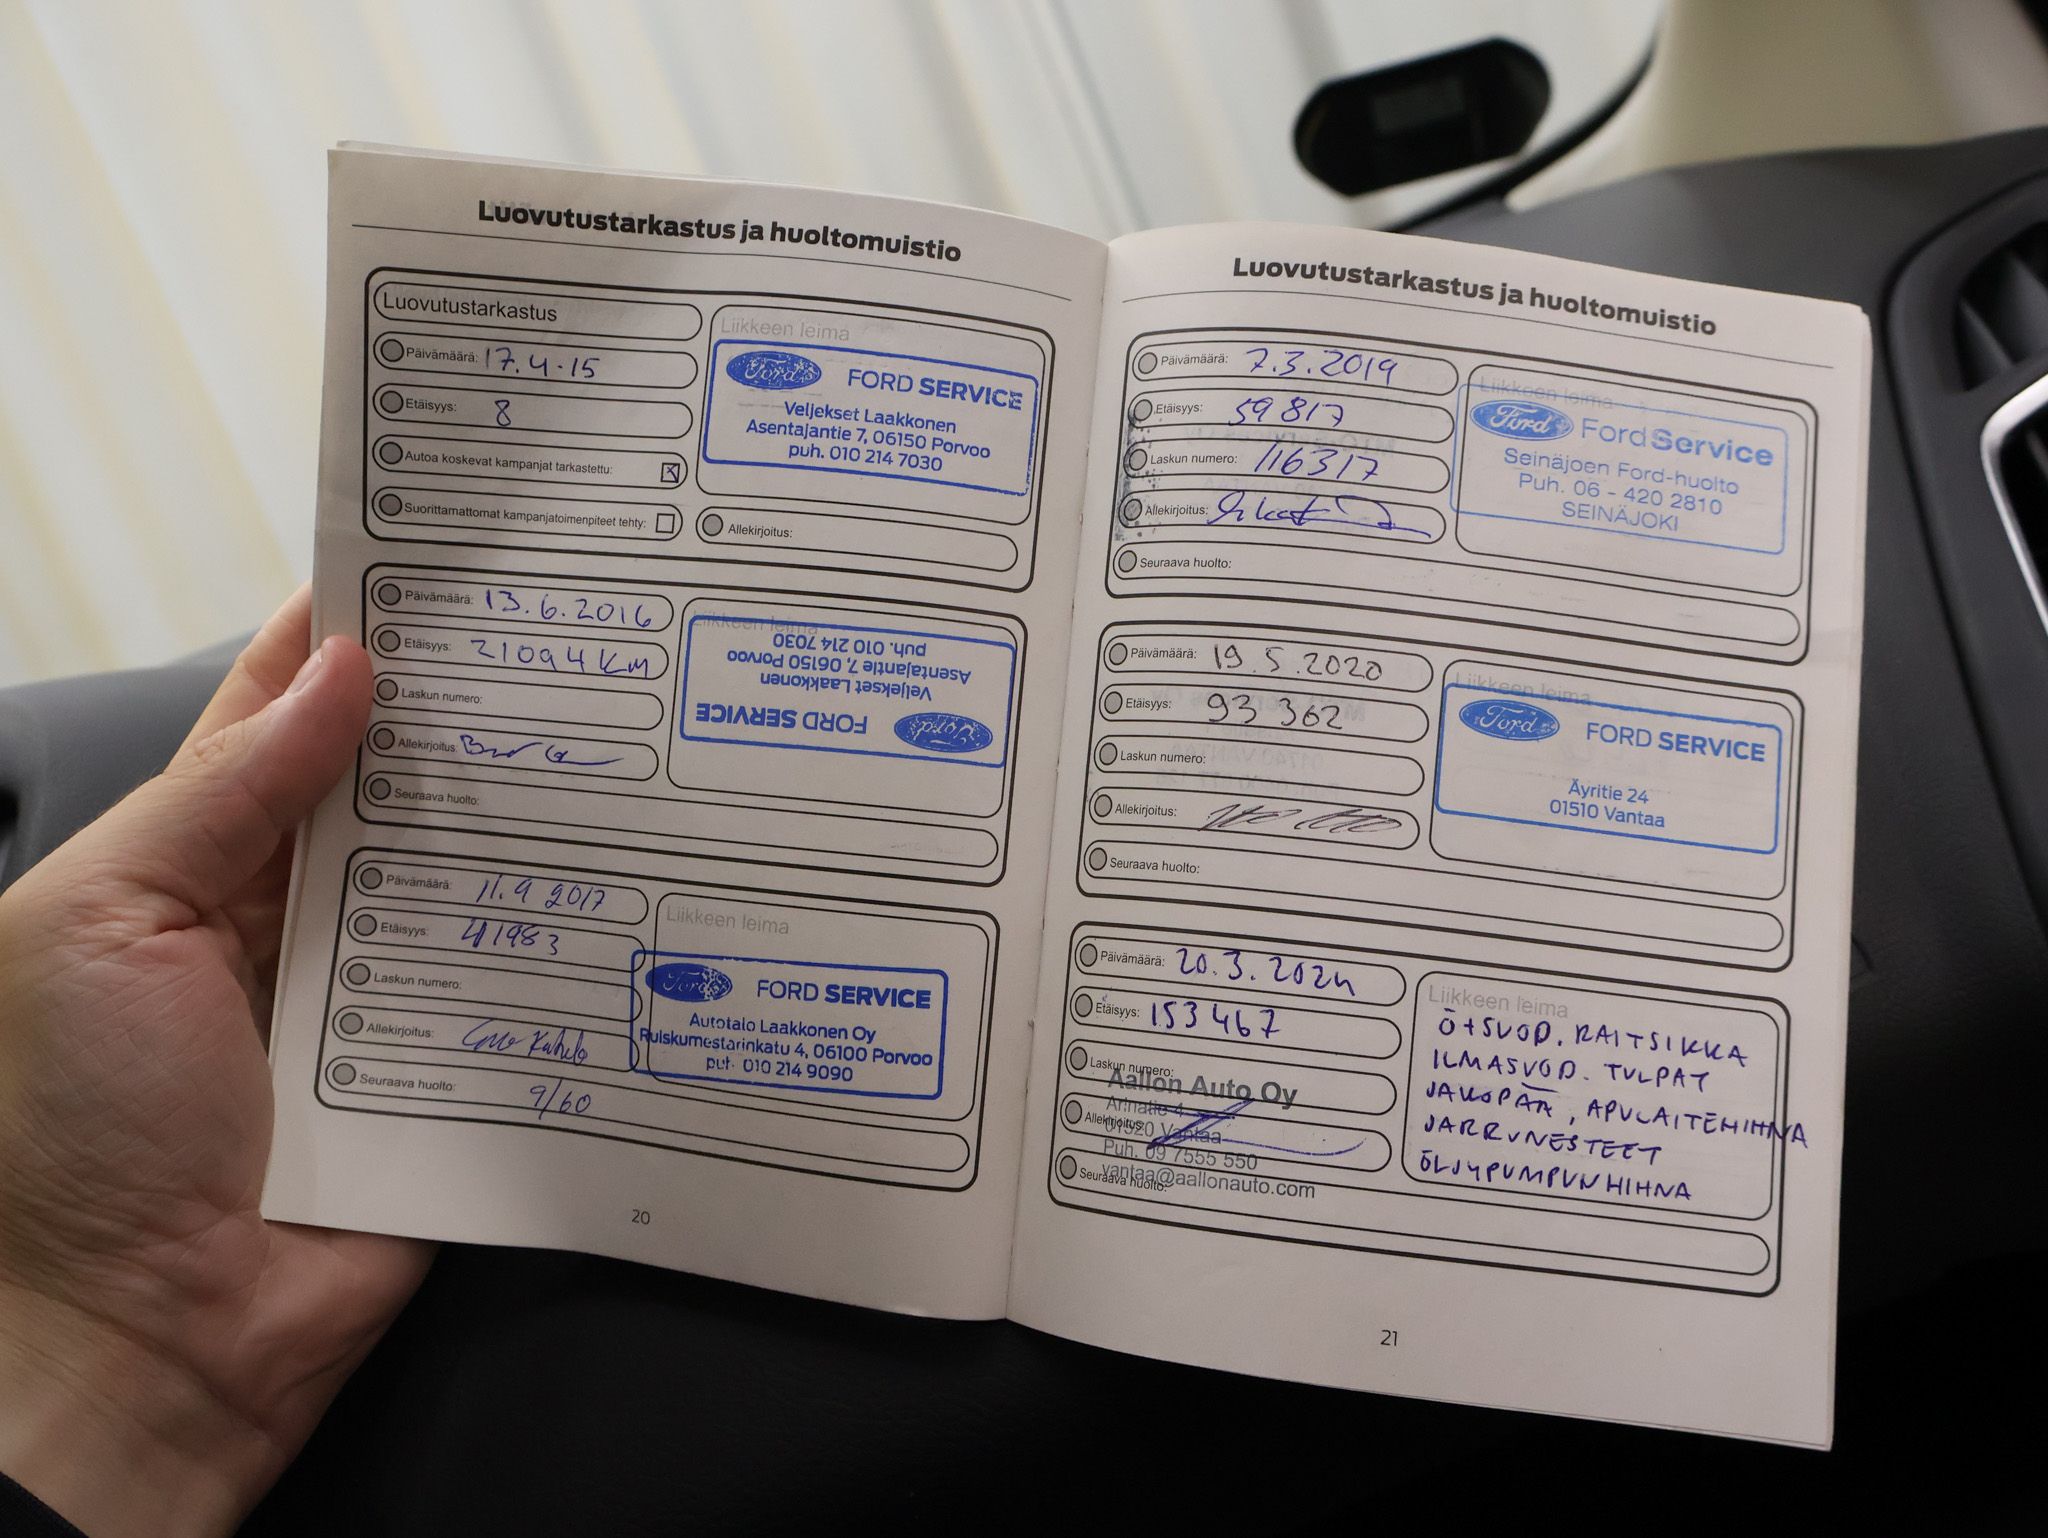 Luovutustarkastus ja huoltomuistio
Luovutustarkastus
Päivämäärä: 17.4.15
Etäisyys: 8
Autoa koskevat kampanjat tarkastettu: x
Suorittamattomat kampanjatoimenpiteet tehty:
Liikkeen leima
Ford FORD SERVICE
Veljekset Laakkonen
Asentajantie 7, 06150 Porvoo
puh. 010 214 7030
Allekirjoitus:
Päivämäärä: 13.6.2016
Etäisyys: 21094 KM
Laskun numero:
Allekirjoitus:
Seuraava huolto:
Liikkeen leima
Ford FORD SERVICE
Veljekset Laakkonen
Asentajantie 7, 06150 Porvoo
puh. 010 214 7030
Päivämäärä: 11.9 2017
Etäisyys: 41983
Laskun numero:
Allekirjoitus:
Seuraava huolto: 9/60
Liikkeen leima
Ford FORD SERVICE
Autotalo Laakkonen Oy
Ruiskumestarinkatu 4, 06100 Porvoo
puh. 010 214 9090
20
Luovutustarkastus ja huoltomuistio
Päivämäärä: 7.3.2019
Etäisyys: 59817
Laskun numero: 116317
Allekirjoitus:
Seuraava huolto:
Liikkeen leima
Ford FordService
Seinäjoen Ford-huolto
Puh. 06 - 420 2810
SEINÄJOKI
Päivämäärä: 19.5.2020
Etäisyys: 93 362
Laskun numero:
Allekirjoitus:
Seuraava huolto:
Liikkeen leima
Ford FORD SERVICE
Äyritie 24
01510 Vantaa
Päivämäärä: 20.3.2024
Etäisyys: 153 467
Laskun numero:
Allekirjoitus:
Seuraava huolto:
Aallon Auto Oy
Arinatie 4
01520 Vantaa
Puh. 09 7555 550
vantaa@aallonauto.com
Liikkeen leima
Ö+SUOD. RAITSIKKA
ILMASUOD. TULPAT
JAKOPÄÄ, APULAITEHIHNA
JARRUNESTEET
ÖLJYPUMPUN HIHNA
21